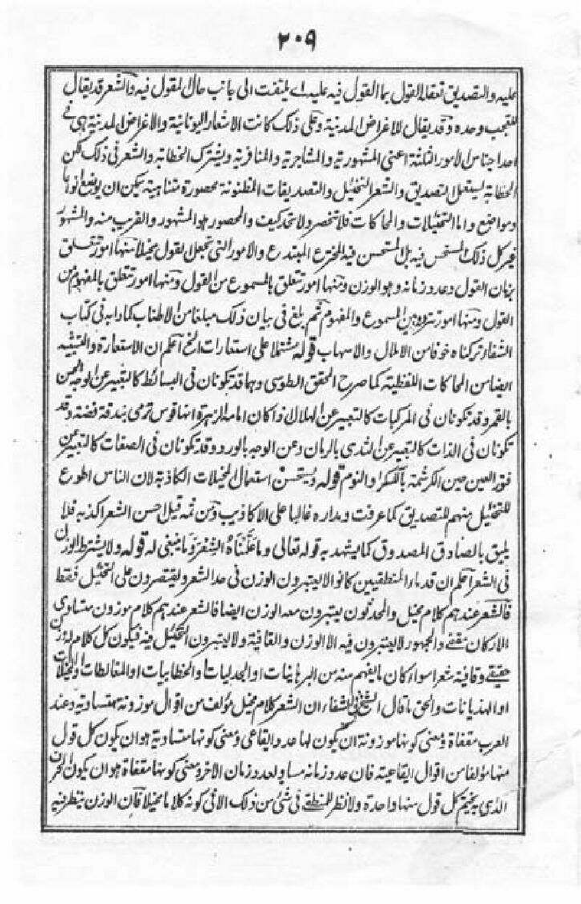 ٢٠٩
عليه والتصديق تفعله القول بما القول فيه عليه اے يلتفت الى جانب حال المقول فيه والشعر قد يقال
للتعجب وحده وقد يقال للاغراض المدنية وعلى ذلك كانت الاشعار اليونانية والاغراض المدنية هى فى
احد اجناس الامور الثلثة اعنى المشهورية والمشاجرية والمنافرية ويشترك الخطابة والشعر فى ذلك لكن
الخطابة ليستعمل التصديق والشعر التخئيل والتصديقات المظنونة محصورة متناهية يمكن ان يوضع انواعا
ومواضع واما التخئيلات والمحاكات فلا تحصر ولا تحد كيف والمحصور هو المشهور والقريب منه والمشهور
غير كل ذلك المستحسن فيه بل المستحسن فيه المخترع المبتدع والامور التى تجعل القول مخيلا منها امور تتعلق
بزمان القول وعدد زمانه وهو الوزن ومنها امور تتعلق بالمسموع من القول ومنها امور تتعلق بالمفهوم من
القول ومنها امور تتردد بين المسموع والمفهوم ثم بلغ فى بيان ذلك مبلغا من الاطناب كما دابه فى كتاب
الشفاء تركناه خوفا من الاملال والاسهاب قوله مشتملا على استعارات الخ اعلم ان الاستعارة والتشبيه
ايضا من المحاكات اللفظية كما صرح المحقق الطوسى وهما قد تكونان فى البسائط كالتعبير عن الوجه الحسن
بالقمر وقد تكونان فى المركبات كالتعبير عن الهلال اذا كان امامه الزهرة انها قوس ترمى بندقة فضة وقد
تكونان فى الذات كالتعبير عن الثدى بالرمان وعن الوجه بالورد وقد تكونان فى الصفات كالتعبير عن
فتور العين حين الكرشمة بالسكر والنوم قوله ويستحسن استعمال المخيلات الكاذبة لان الناس اطوع
للتخئيل منهم للتصديق كما عرفت ومداره غالبا على الاكاذيب ومن ثمه قيل احسن الشعر اكذبه فلا
يليق بالصادق المصدوق كما يشهد به قوله تعالى وما علمناه الشعر وما ينبغى له قوله ولا يشترط الوزن
فى الشعر اعلم ان قدماء المنطقيين كانوا لا يعتبرون الوزن فى حد الشعر ويقتصرون على التخئيل فقط
فالشعر عندهم كلام مخيل والمحدثون يعتبرون معه الوزن ايضا فالشعر عندهم كلام موزون متساوى
الاركان مقفى والجمهور لا يعتبرون فيه الا الوزن والقافية ولا يعتبرون التخئيل فيه فيكون كل كلام له وزن
حقيقى وقافية شعرا سواء كان ما يفهم منه من البرهانيات او الجدليات او الخطابيات او المغالطات او المخيلات
او الهذيانات والحق ما قال الشيخ فى الشفاء ان الشعر كلام مخيل مؤلف من اقوال موزونة متساوية وعند
العرب مقفاة ومعنى كونها موزونة ان يكون لها عدد ايقاعى ومعنى كونها متساوية هو ان يكون كل قول
منها مؤلفا من اقوال ايقاعية فان عدد زمانه مساو لعدد زمان الاخر ومعنى كونها مقفاة هو ان يكون الحرف
الذى يختم به كل قول منها واحدة ولا نظر للمنطقى فى شئ من ذلك الا فى كونه كلاما مخيلا فان الوزن ينظر فيه